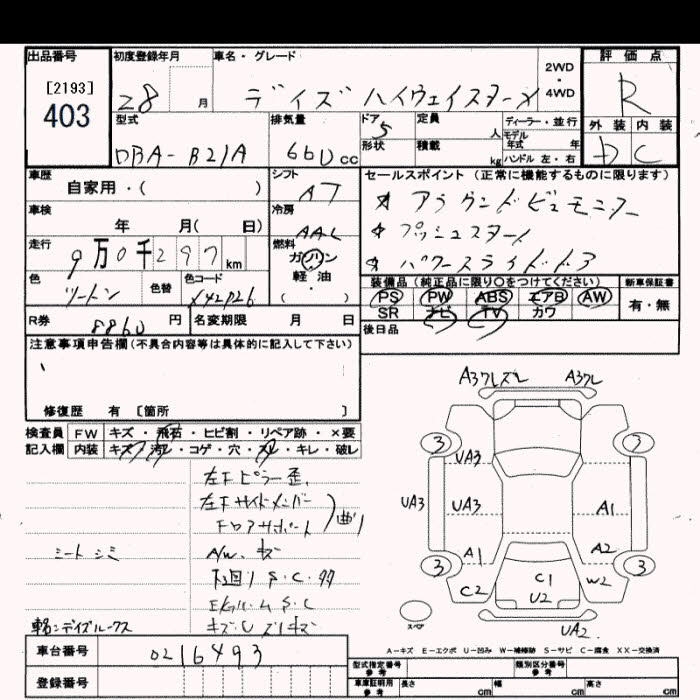 出品番号 初度登録年月 車名・グレード 2WD・4WD 評価点
[2193]
403
28 月 デイズ ハイウェイスターX R
型式 排気量 ドア 定員 人 ディーラー・並行 モデル年式 年 外装 内装
DBA-B21A 660 cc 5 形状 積載 kg ハンドル 左・右 D C
車歴 シフト セールスポイント (正常に機能するものに限ります)
自家用・( ) AT ☆ アラウンドビュモニター
車検 冷房 ☆ プッシュスタート
年 月( 日) AAC ☆ パワースライドドア
走行 燃料
9万0千297 km ガソリン 軽油・( )
色 色替 色コード 装備品 (純正品に限り〇をつけてください) 新車保証書
ツートン X42P26 PS PW ABS エアB AW 有・無
SR ナビ TV カワ
R券 8860 円 名変期限 月 日 後日品
注意事項申告欄(不具合内容等は具体的に記入して下さい)
修復歴 有 [箇所 ]
検査員 FW キズ・飛石・ヒビ割・リペア跡・×要
記入欄 内装 キズ・汚レ・コゲ・穴・スレ・キレ・破レ
左Fピラー歪
左Fサイドメンバー
Fロアサポート 曲り
シート シミ A/W キズ
下廻り S・C・
Eルーム S・C
車名:デイズルークス キズ・U スリキズ
車台番号 0216493
登録番号
A3フレズレ A3フレ
3 3
UA3
UA3 UA3 A1
A1 A2
3 3
C2 C1 W2
U2
スペア
UA2
A-キズ E-エクボ U-凹み W-補修跡 S-サビ C-腐食 XX-交換済
型式指定番号 参考 類別区分番号 参考
車庫証明用 参考 長さ cm 幅 cm 高さ cm